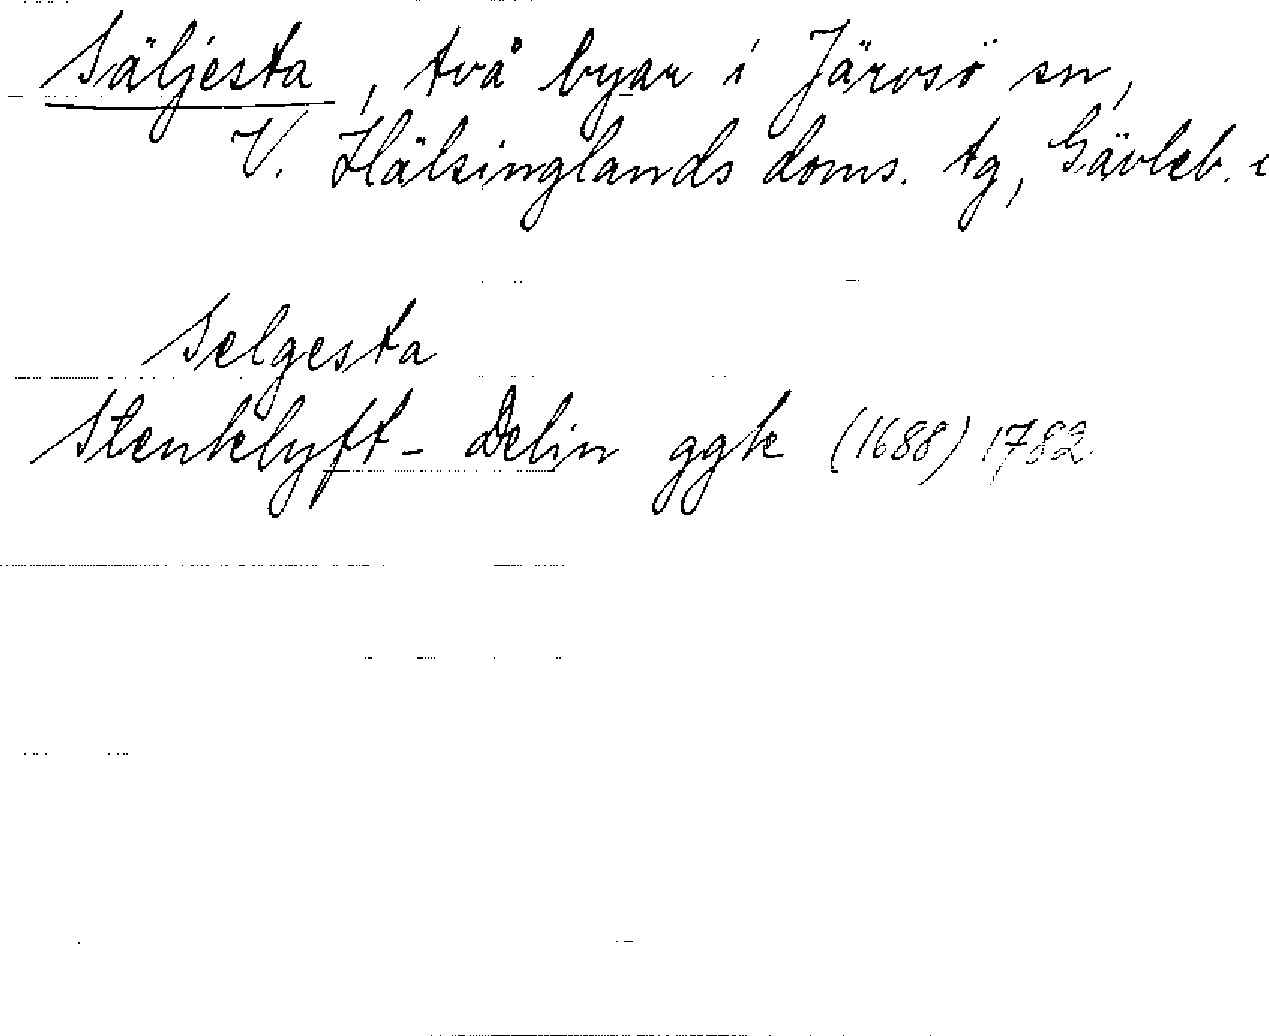 Säljesta, två byar i Järvsö sn,
V. Hälsinglands doms. tg, Gävleb.
Selgesta
Stenklyft - Delin ggk (1688) 1782.